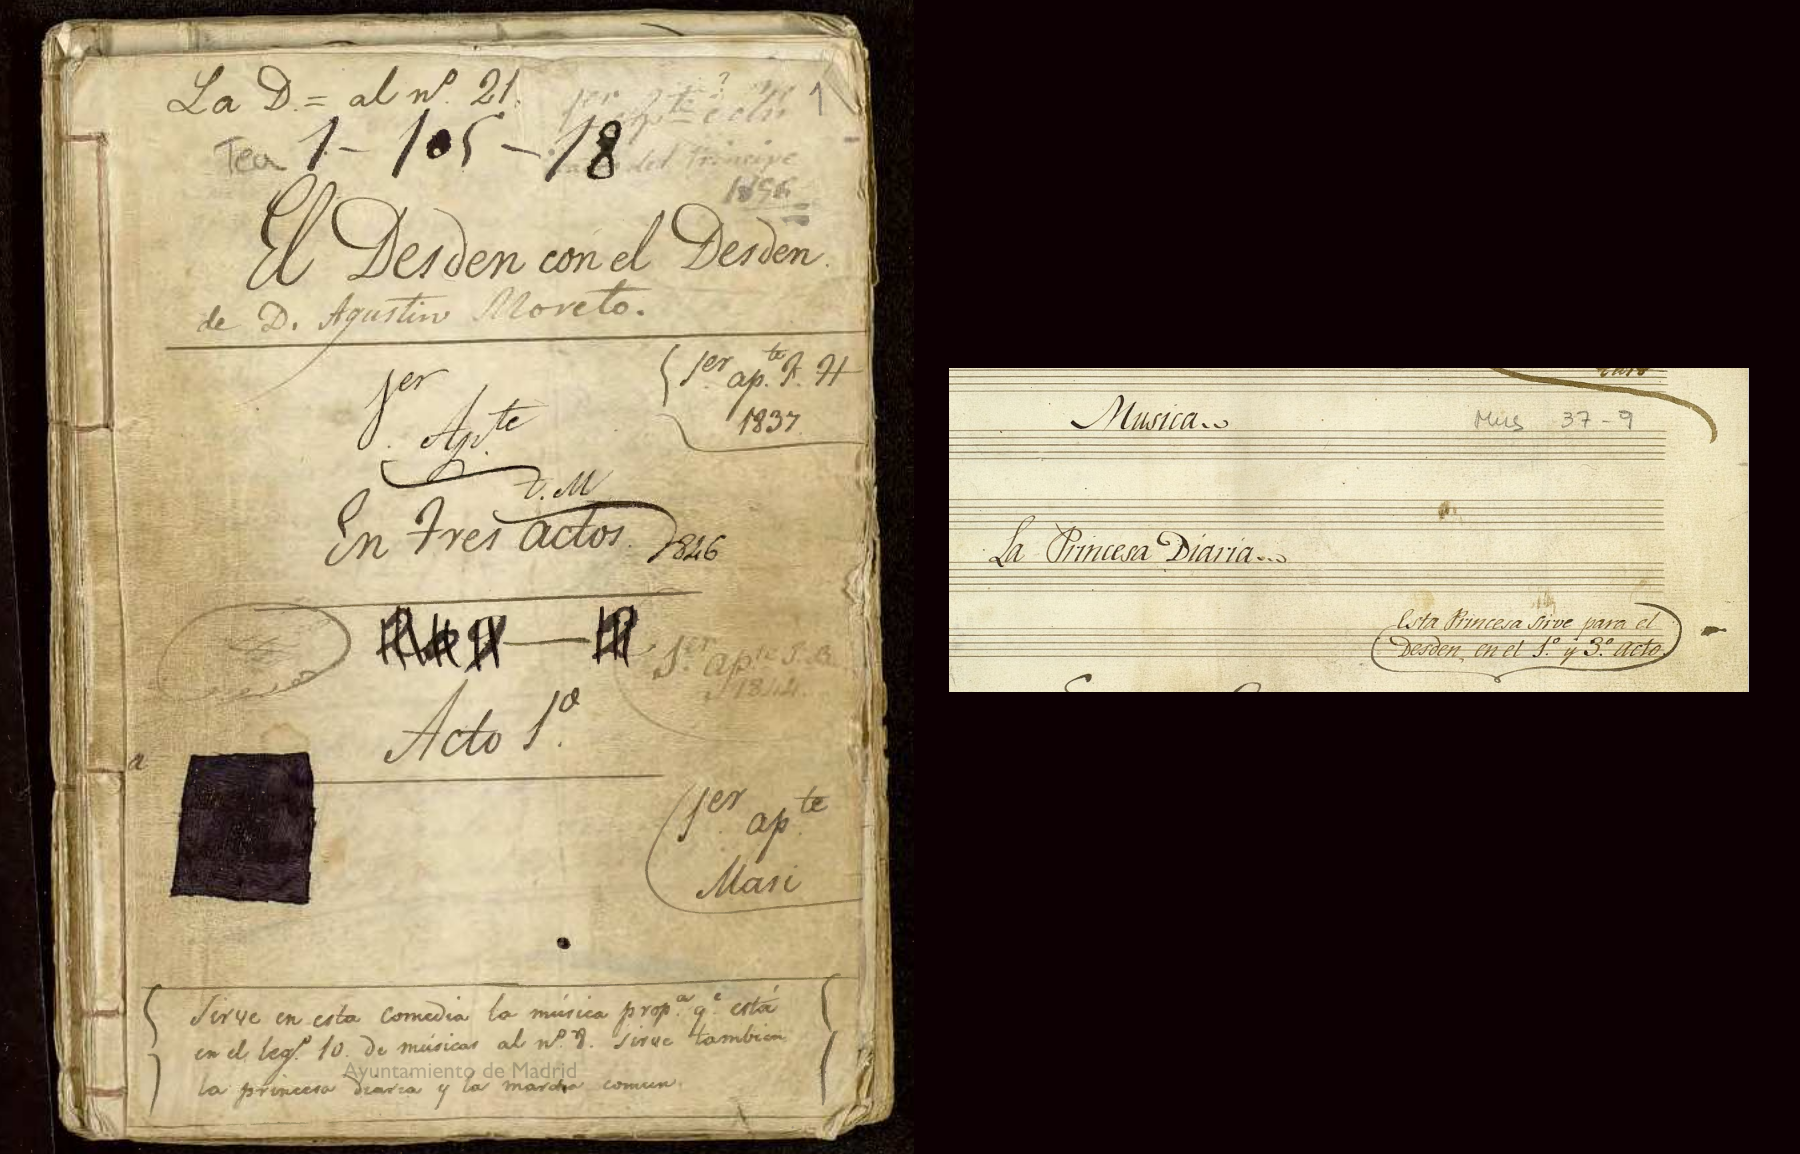 La D. = al nº. 21.
1
Tea 1 - 105 - 18
del Principe
El Desden con el Desden.
de D. Agustin Moreto.
1er
Ap.te
{ 1er ap.te
1837
En tres actos.
1846
1er ap.te
Acto 1º.
a
1er
ap.te
Masi
Sirve en esta comedia la música prop.a q.e está
en el leg.º 10. de músicas al nº 8. Sirve tambien
la princesa diaria y la marcha comun.
Ayuntamiento de Madrid
Musica
Mus 37-9
La Princesa Diaria
Esta Princesa sirve para el
Desden, en el 1º. y 3º. acto.